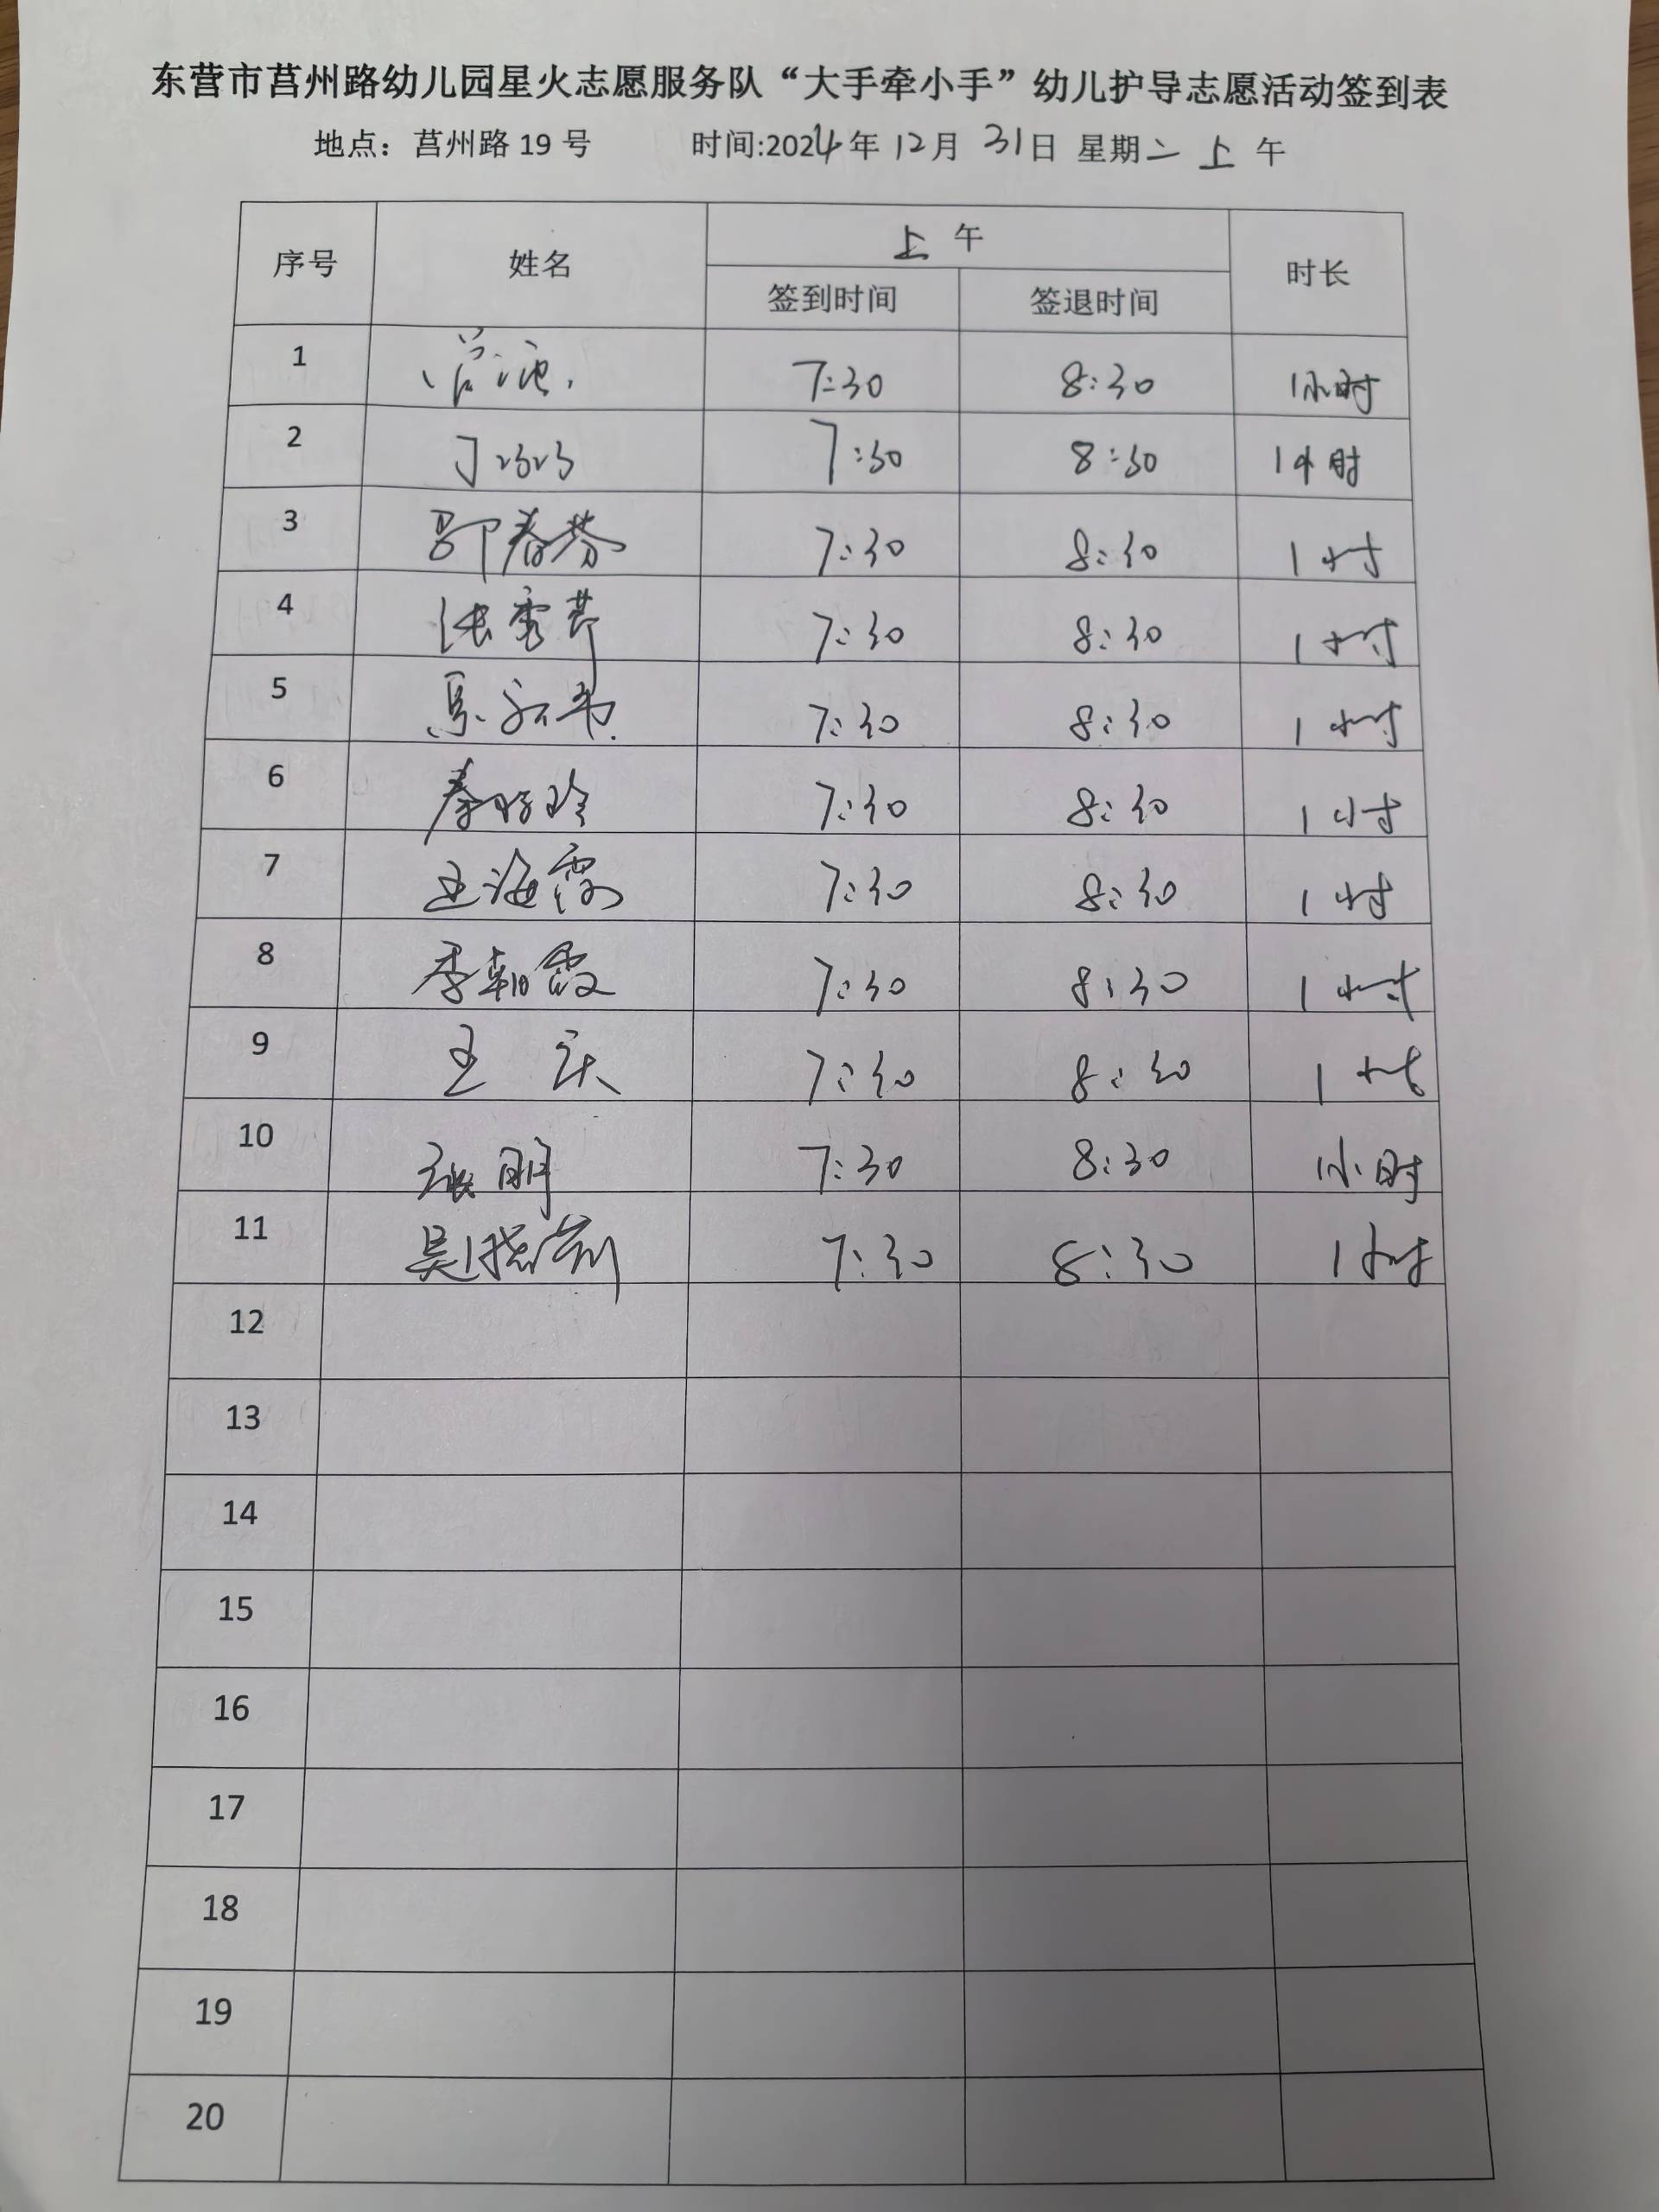 东营市莒州路幼儿园星火志愿服务队“大手牵小手”幼儿护导志愿活动签到表
地点：莒州路 19 号 时间:2024年 12月 31日 星期二 上 午
序号 姓名 上 午 时长
签到时间 签退时间
1 7:30 8:30 1小时
2 丁 7:30 8:30 1小时
3 郭春芬 7:30 8:30 1小时
4 张秀芹 7:30 8:30 1小时
5 7:30 8:30 1小时
6 秦 玲 7:30 8:30 1小时
7 王海霞 7:30 8:30 1小时
8 李朝霞 7:30 8:30 1小时
9 王 庆 7:30 8:30 1小时
10 张明 7:30 8:30 1小时
11 吴 7:30 8:30 1小时
12
13
14
15
16
17
18
19
20